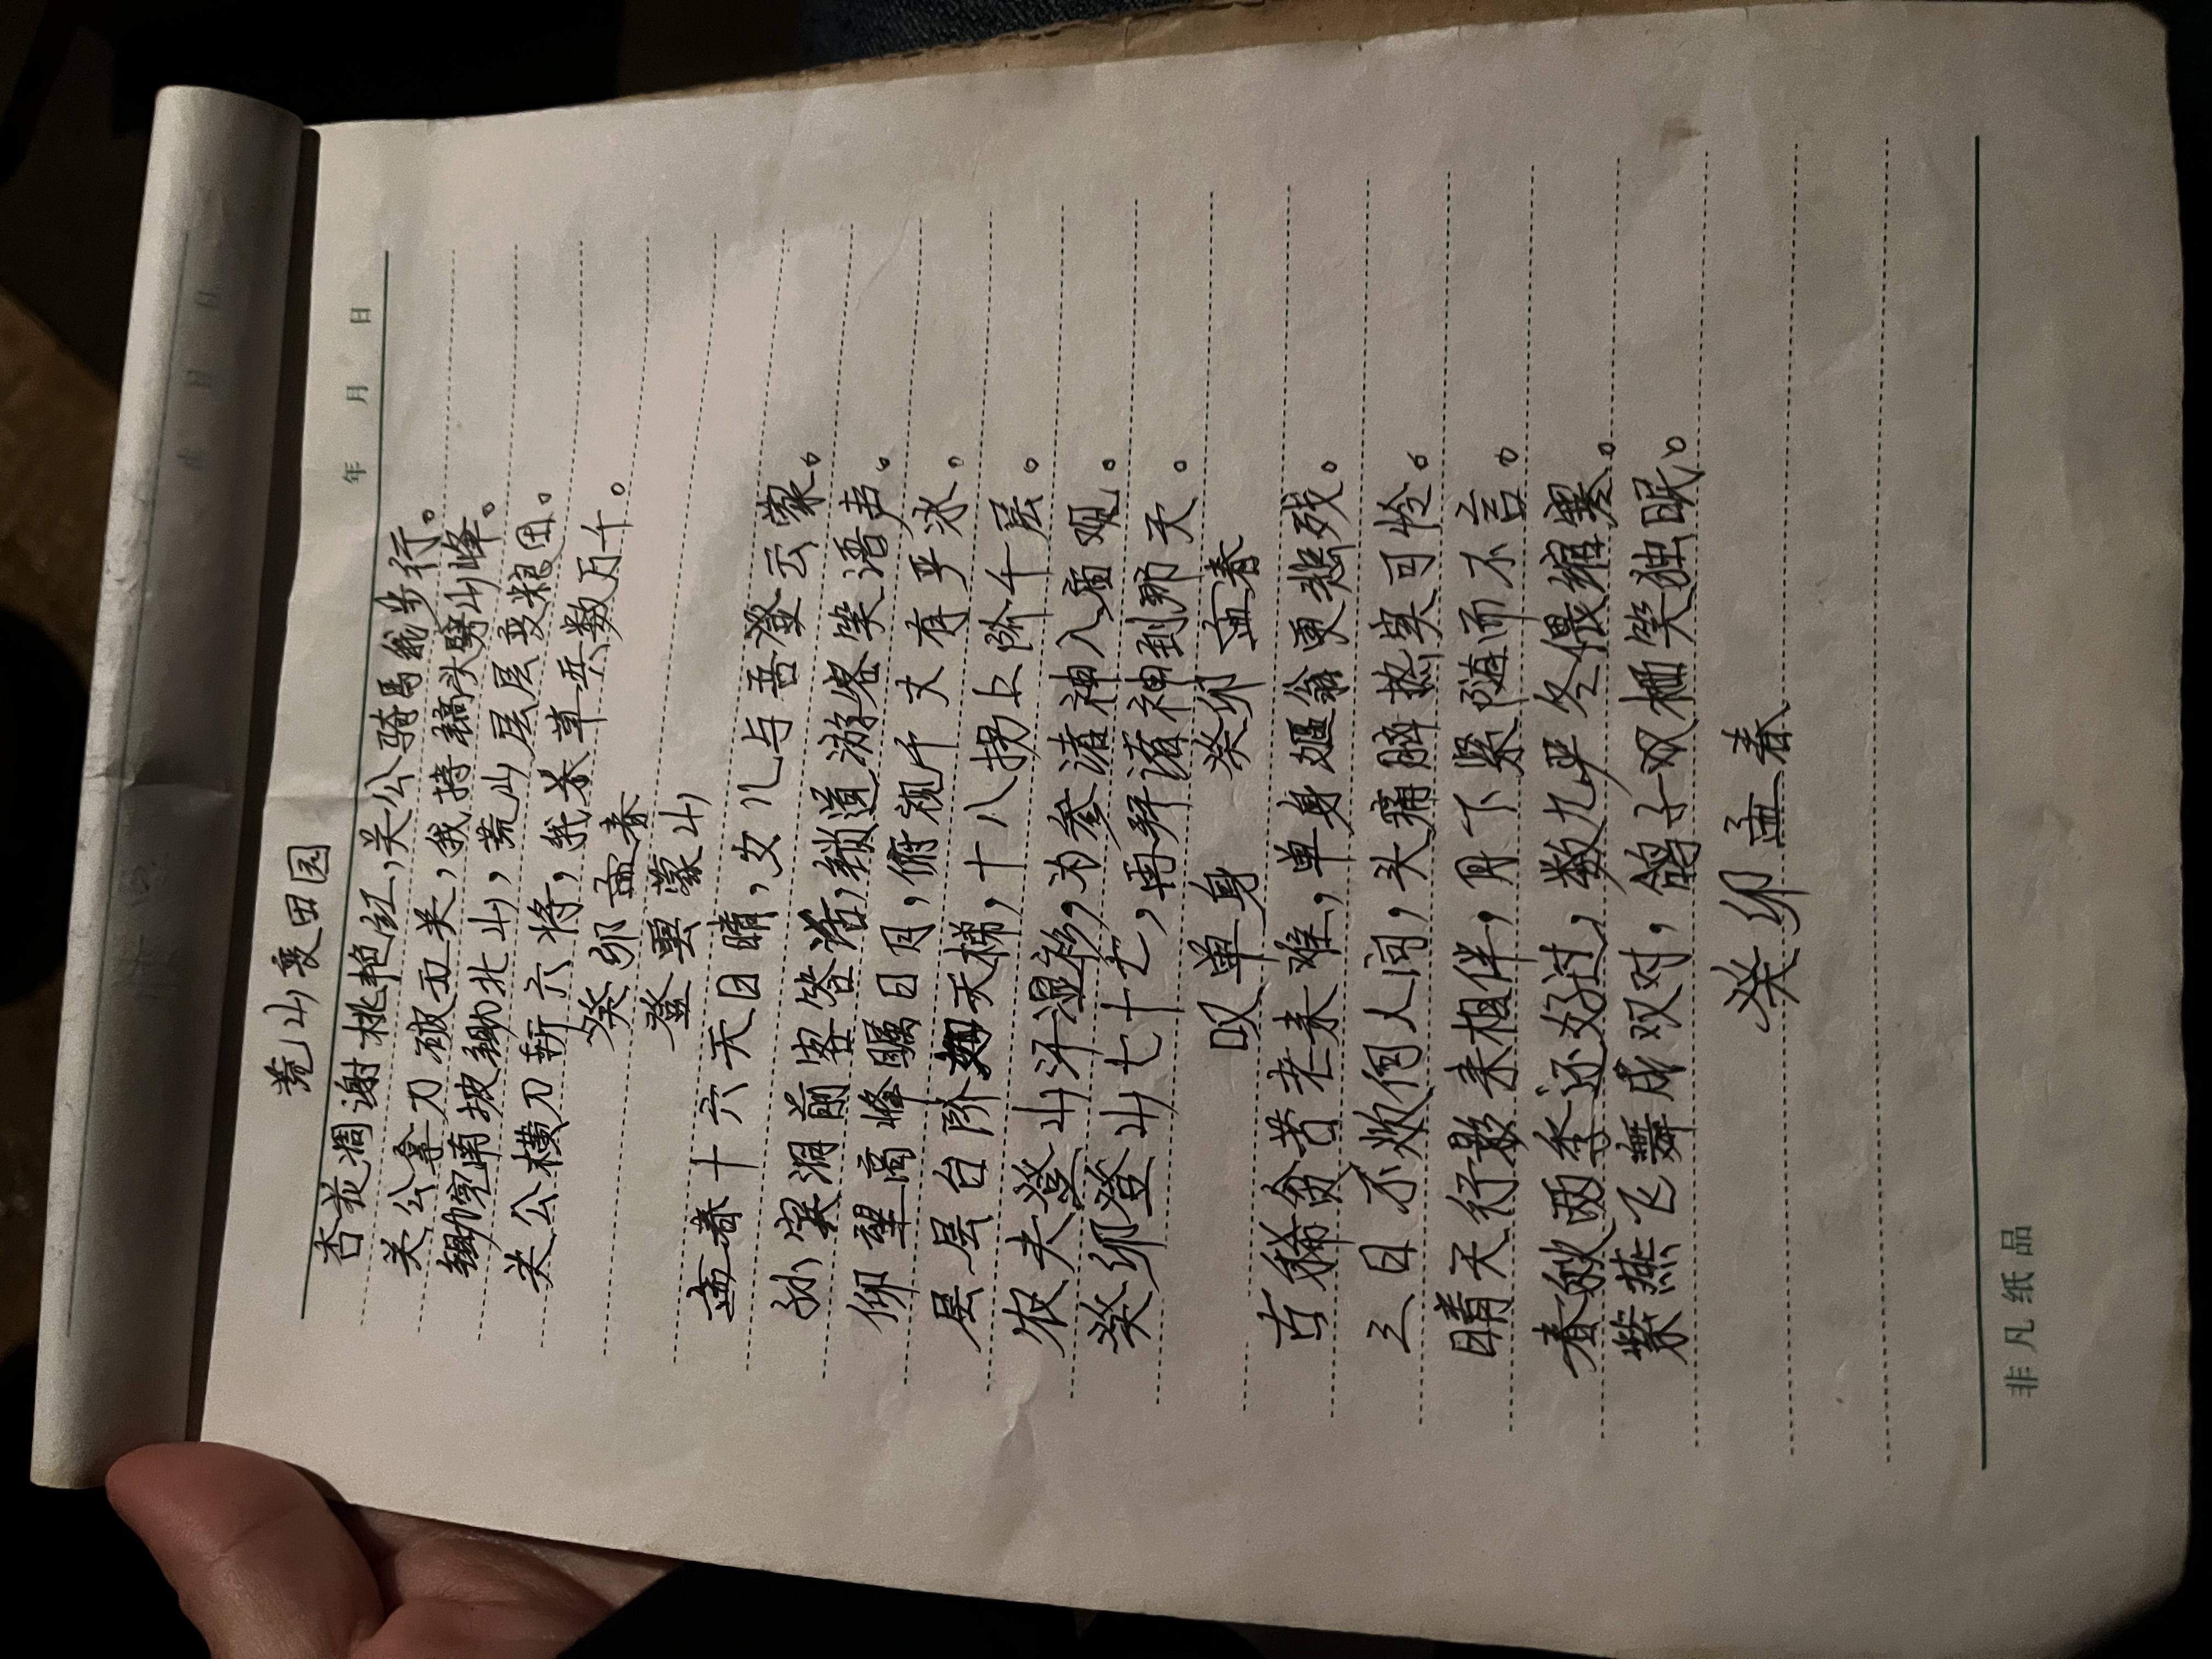 荒山变田园
年 月 日
杏花凋谢桃艳红,关公骑马我步行。
关公拿刀破五关,我持镐头劈山峰。
锄完南坡锄北山,荒山层层变粮田。
关公横刀斩六将,我杀草兵数万千。
癸卯孟春
登云蒙山
孟春十六天日晴,女儿与吾登云蒙。
孙家洞前客答话,鞘道游客笑语声。
仰望高峰瞩日月,俯视千丈有乎冰。
层层台阶如天梯,十八拐上阶千层。
农夫登山汗湿衫,为参诸神入庙观。
癸卯登山七十七,再拜诸神到那天。
癸卯孟春
叹单身
古稀贫苦老来难,单身媪翁更悲残。
三日不炊何人问,头痛脑热莫可怜。
晴天行影来相伴,月下紧随而不言。
春秋两季还好过,数九严冬偎缩寒。
紫燕飞舞成双对,鸽子双栖笑独眠。
癸卯孟春
非凡纸品